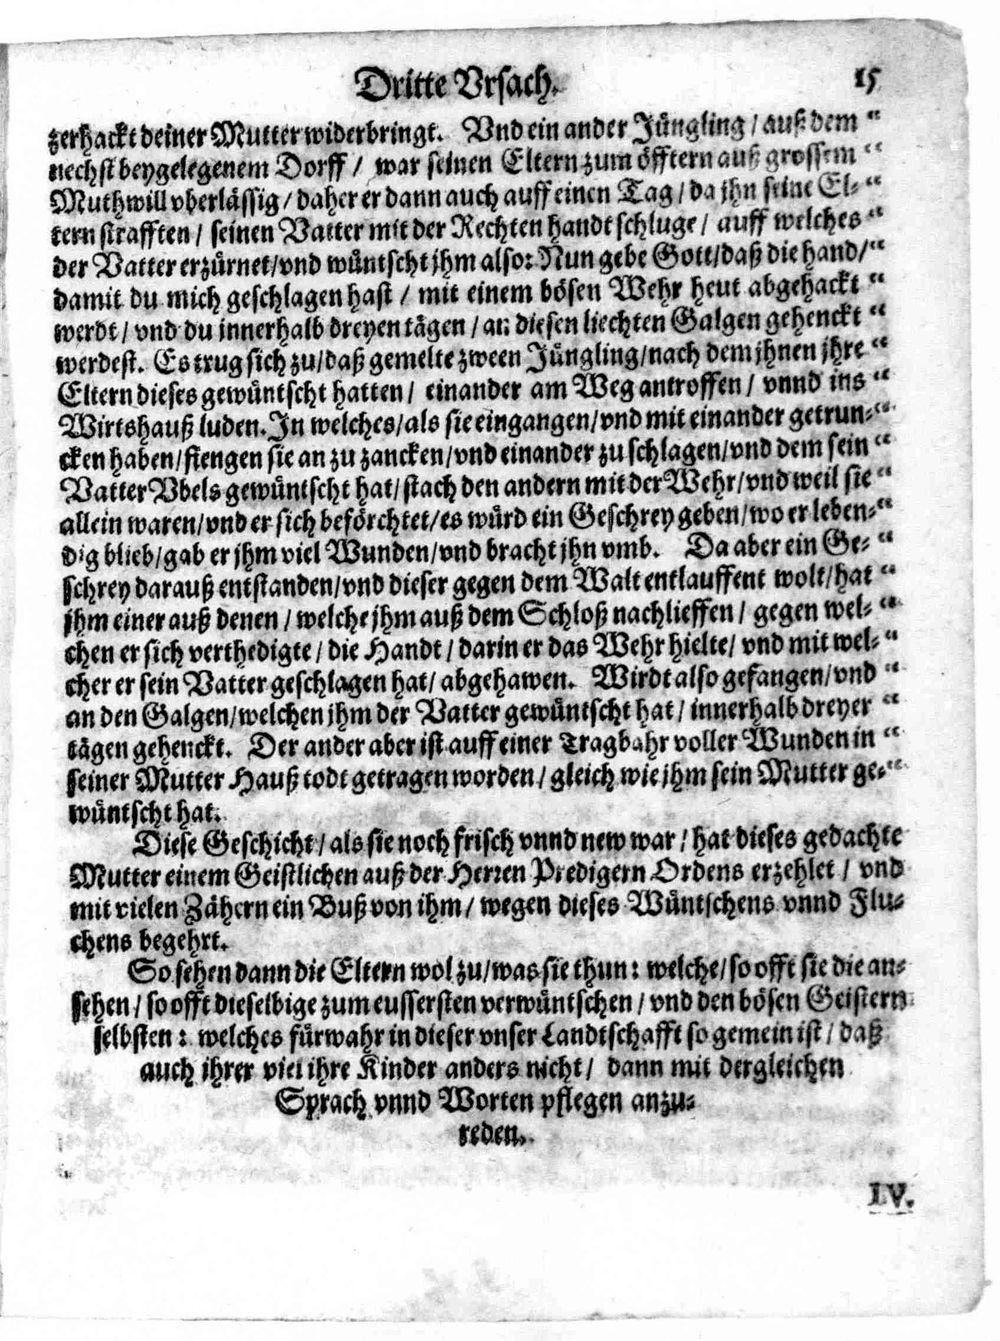 Dritte Vrsach. 15
zerhackt deiner Mutter widerbringt. Vnd ein ander Jüngling / auß dem “
nechst beygelegenem Dorff / war seinen Eltern zum öfftern auß grossem “
Muthwill vberlässig / daher er dann auch auff einen Tag / da jhn seine El- “
tern strafften / seinen Vatter mit der Rechten handt schluge / auff welches “
der Vatter erzürnet / vnd wüntscht jhm also: Nun gebe Gott / daß die hand / “
damit du mich geschlagen hast / mit einem bösen Wehr heut abgehackt “
werdt / vnd du innerhalb dreyen tägen / an diesen liechten Galgen gehenckt “
werdest. Es trug sich zu / daß gemelte zween Jüngling / nach dem jhnen jhre “
Eltern dieses gewüntscht hatten / einander am Weg antroffen / vnnd ins “
Wirtshauß luden. In welches / als sie eingangen / vnd mit einander getrun- “
cken haben / fiengen sie an zu zancken / vnd einander zu schlagen / vnd dem sein “
Vatter Vbels gewüntscht hat / stach den andern mit der Wehr / vnd weil sie “
allein waren / vnd er sich beförchtet / es würd ein Geschrey geben / wo er leben- “
dig blieb / gab er jhm viel Wunden / vnd bracht jhn vmb. Da aber ein Ge- “
schrey darauß entstanden / vnd dieser gegen dem Walt entlauffent wolt / hat “
jhm einer auß denen / welche jhm auß dem Schloß nachlieffen / gegen wel- “
chen er sich verthedigte / die Handt / darin er das Wehr hielte / vnd mit wel- “
cher er sein Vatter geschlagen hat / abgehawen. Wirdt also gefangen / vnd “
an den Galgen / welchen jhm der Vatter gewüntscht hat / innerhalb dreyer “
tägen gehenckt. Der ander aber ist auff einer Tragbahr voller Wunden in “
seiner Mutter Hauß todt getragen worden / gleich wie jhm sein Mutter ge- “
wüntscht hat.
Diese Geschicht / als sie noch frisch vnnd new war / hat dieses gedachte
Mutter einem Geistlichen auß der Herren Predigern Ordens erzehlet / vnd
mit vielen Zähern ein Buß von ihm / wegen dieses Wüntschens vnnd Flu-
chens begehrt.
So sehen dann die Eltern wol zu / was sie thun: welche / so offt sie die an-
sehen / so offt dieselbige zum eussersten verwüntschen / vnd den bösen Geistern
selbsten: welches fürwahr in dieser vnser Landtschafft so gemein ist / daß
auch ihrer viel ihre Kinder anders nicht / dann mit dergleichen
Sprach vnnd Worten pflegen anzu-
reden.
IV.